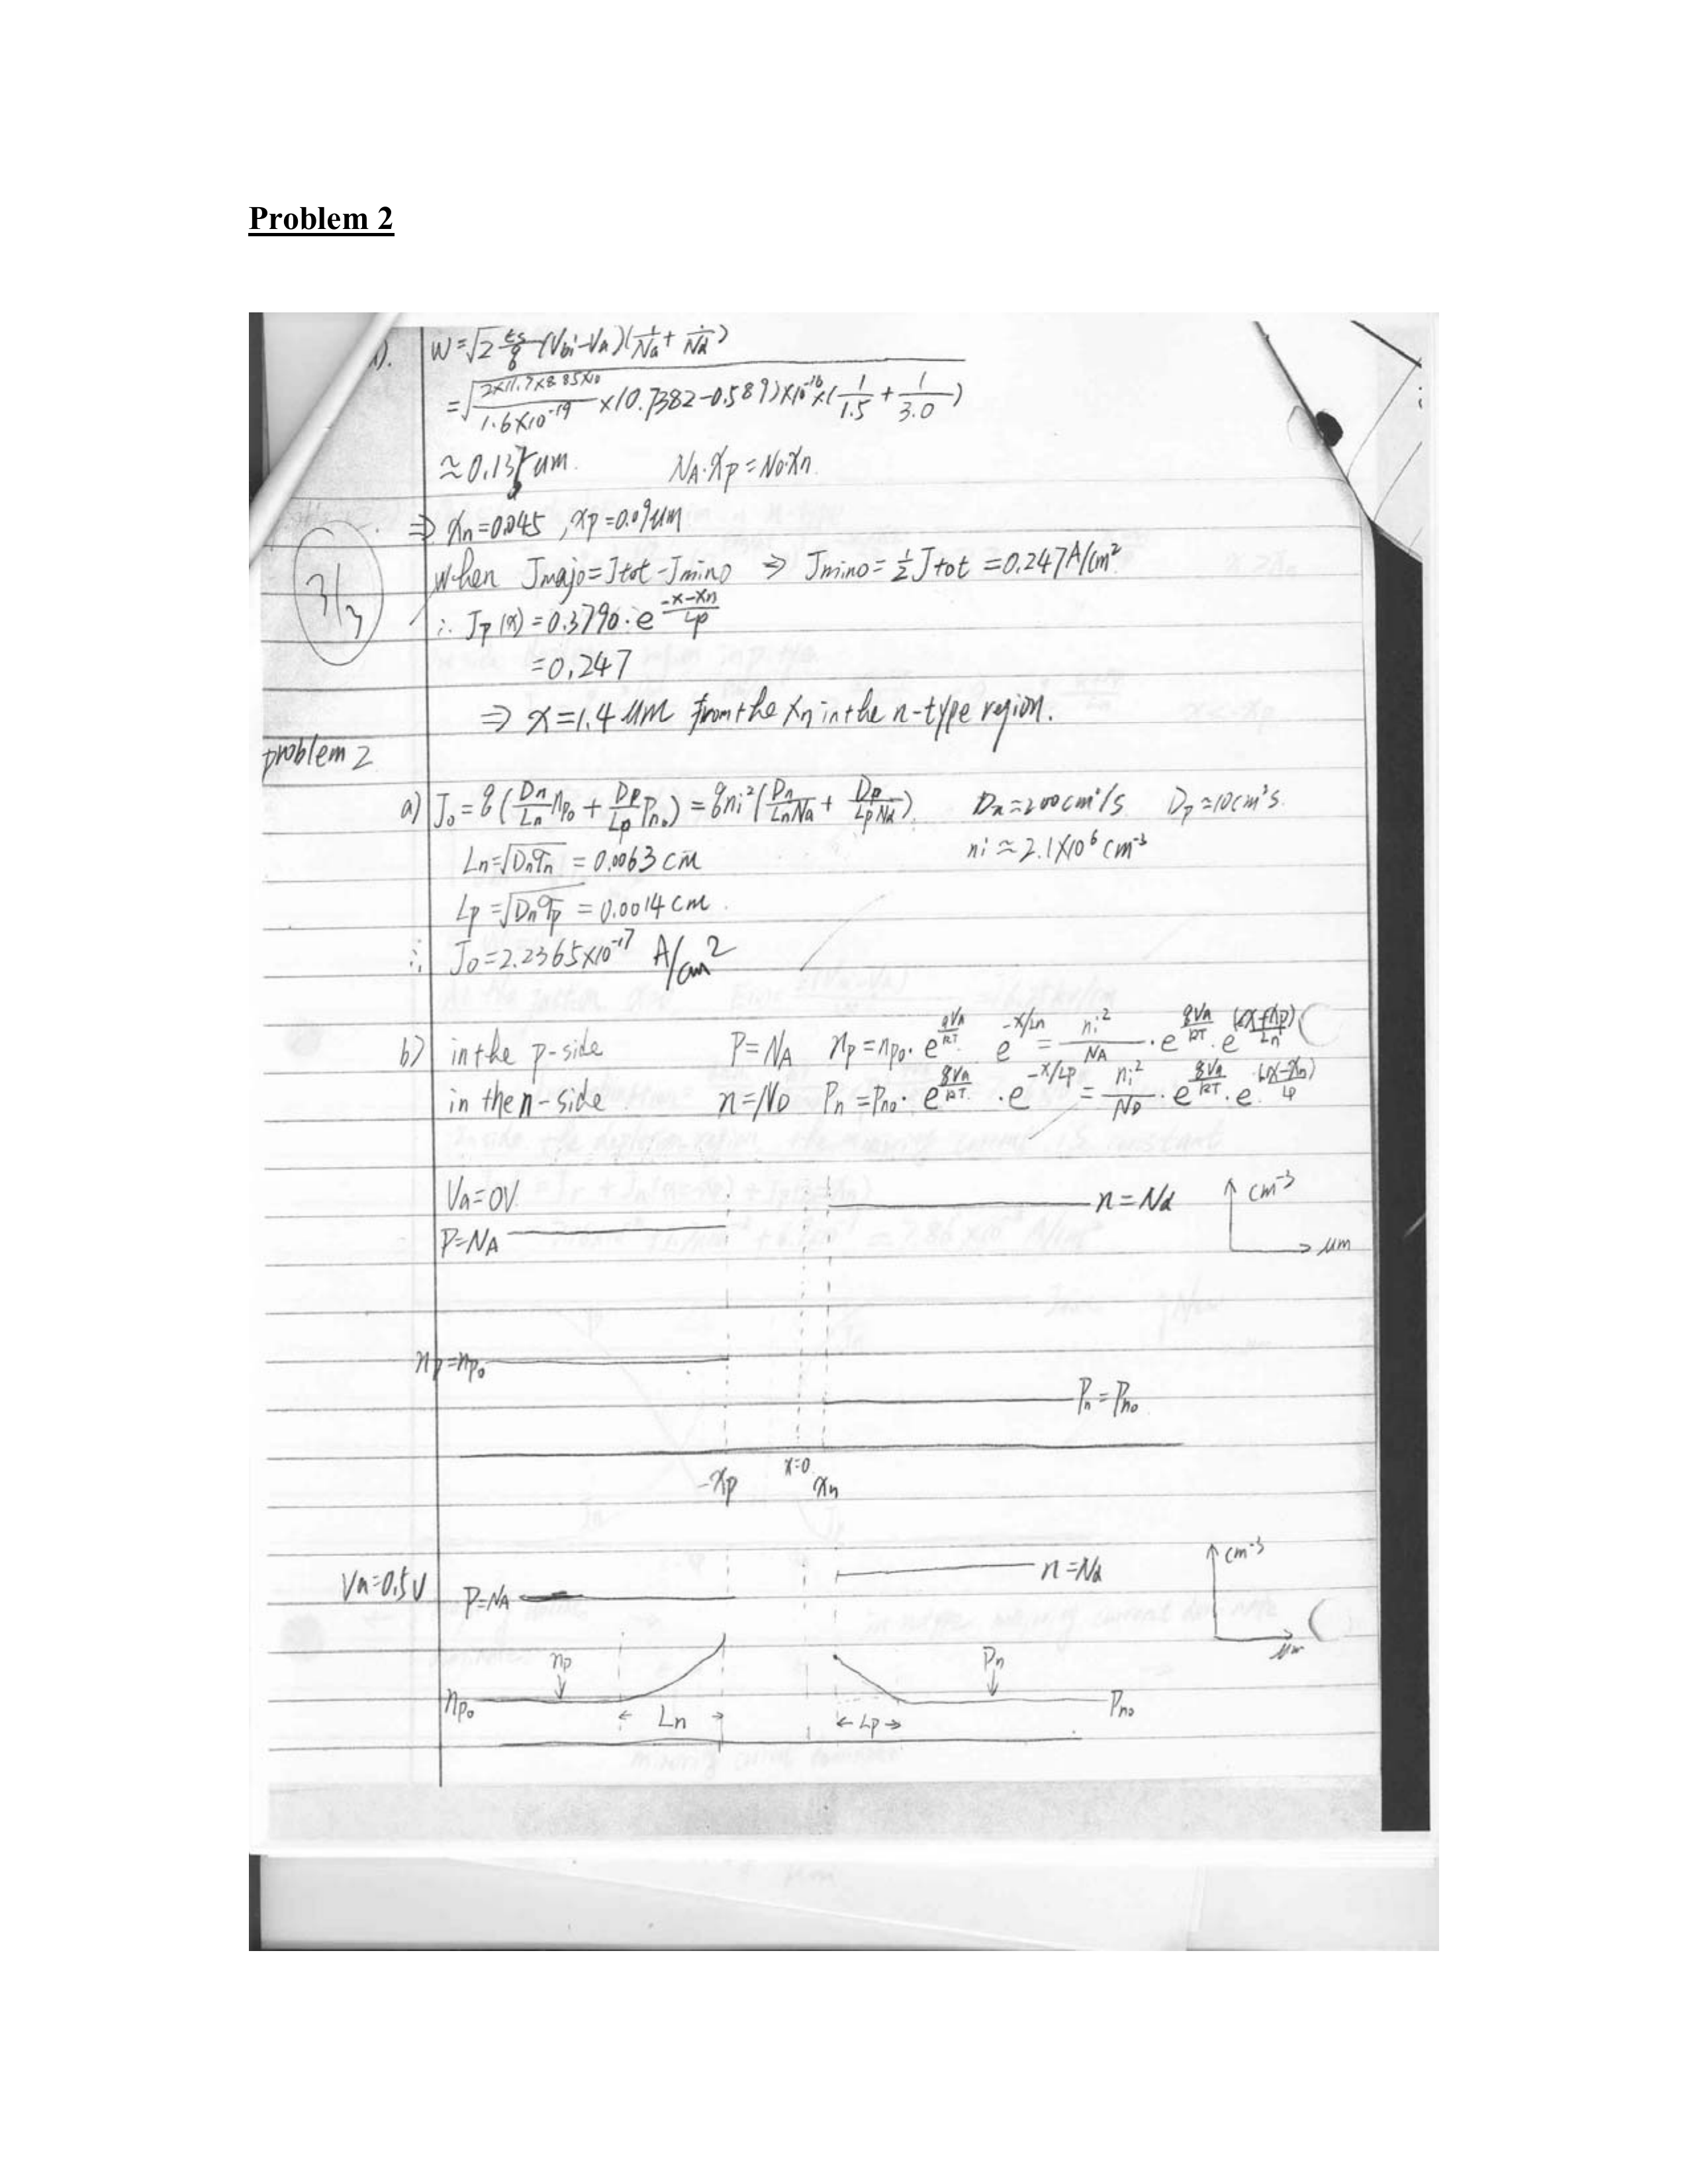 Problem 2
W=√2 εs/q (Vbi-Va)(1/Na + 1/Nd)
=√2×11.7×8.85×10/1.6×10^-19 ×(0.7382-0.589)×10^-16×(1/1.5 + 1/3.0)
≈0.13 um. NA·Xp=ND·Xn.
⇒ Xn=0.045, Xp=0.09um
3/3
When Jmajo=Jtot-Jmino ⇒ Jmino=1/2 Jtot =0.247A/cm²
∴ Jp(x)=0.3790·e^(-x-xn/Lp)
=0.247
⇒ x=1.4 um from the Xn in the n-type region.
problem 2
a) J₀=q(Dn/Ln np₀ + Dp/Lp Pn₀)=qni²(Dn/LnNa + Dp/LpNd) Dn≈200cm²/s Dp≈10cm²s.
Ln=√Dnτn = 0.0063 cm ni≈2.1×10^6 cm^-3
Lp=√Dnτp = 0.0014 cm.
∴ J₀=2.2365×10^-17 A/cm²
b) in the p-side P=NA np=np₀·e^(qVa/kT) e^(-x/Ln)=ni²/NA·e^(qVa/kT)·e^((x+xp)/Ln)
in the n-side n=ND Pn=Pn₀·e^(qVa/kT)·e^(-x/Lp)=ni²/ND·e^(qVa/kT)·e^(-(x-xn)/Lp)
Va=0V. n=Nd cm^-3
P=NA um
np=np₀
Pn=Pn₀
-xp x=0 xn
Va=0.5V P=NA n=Nd cm^-3
np Pn um
np₀ Ln Lp Pn₀